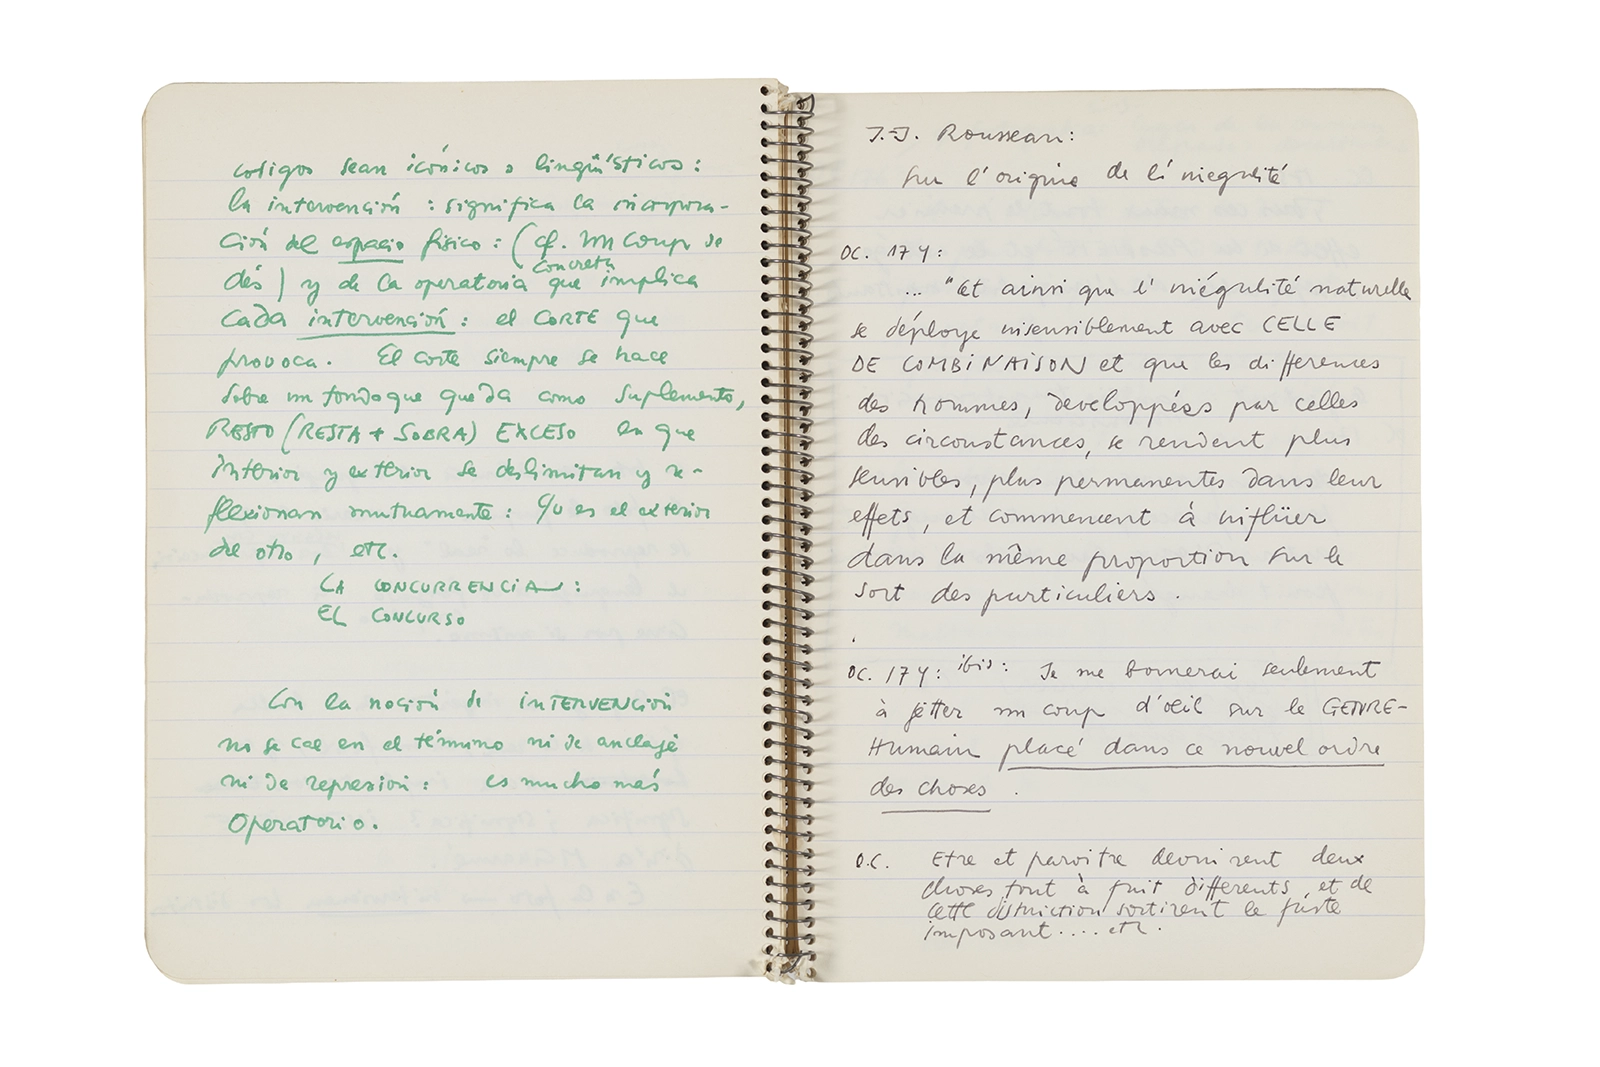 codigos sean icónicos o lingüísticos :
la intervención : significa la incorpora-
ción del espacio físico : (cf. Un Coup de
dés) y de la operatoria concreta que implica
cada intervención : el CORTE que
provoca. El corte siempre se hace
sobre un fondo que queda como suplemento,
RESTO (RESTA + SOBRA) EXCESO en que
interior y exterior se deslimitan y re-
flexionan mutuamente : Yo es el exterior
de otro, etc.
LA CONCURRENCIA :
EL CONCURSO
Con la noción de INTERVENCIÓN
no se cae en el término ni de anclaje
ni de represión : es mucho más
operatorio.
J.-J. Rousseau :
Sur l'origine de l'inegalité
OC. 174 :
... "Et ainsi que l'inégalité naturelle
se déploye insensiblement avec CELLE
DE COMBINAISON et que les differences
des hommes, developpées par celles
des circonstances, se rendent plus
sensibles, plus permanentes dans leur
effets, et commencent à inflüer
dans la même proportion sur le
sort des particuliers .
OC. 174 : ibid : Je me bornerai seulement
à jetter un coup d'oeil sur le GENRE-
Humain placé dans ce nouvel ordre
des choses .
O.C. Etre et paroitre devinrent deux
choses tout à fait differents, et de
cette distinction sortirent le faste
imposant .... etc.